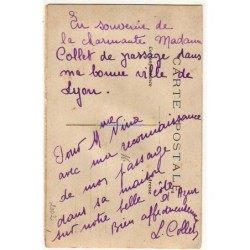 En souvenir de
la charmante Madame
Collet de passage dans
ma bonne ville de
Lyon.
CARTE POSTALE
Pour Mme Nina
avec ma reconnaissance
de mon passage
dans sa maison
sur notre belle côte d'Azur
Bien affectueusement
L. Collet